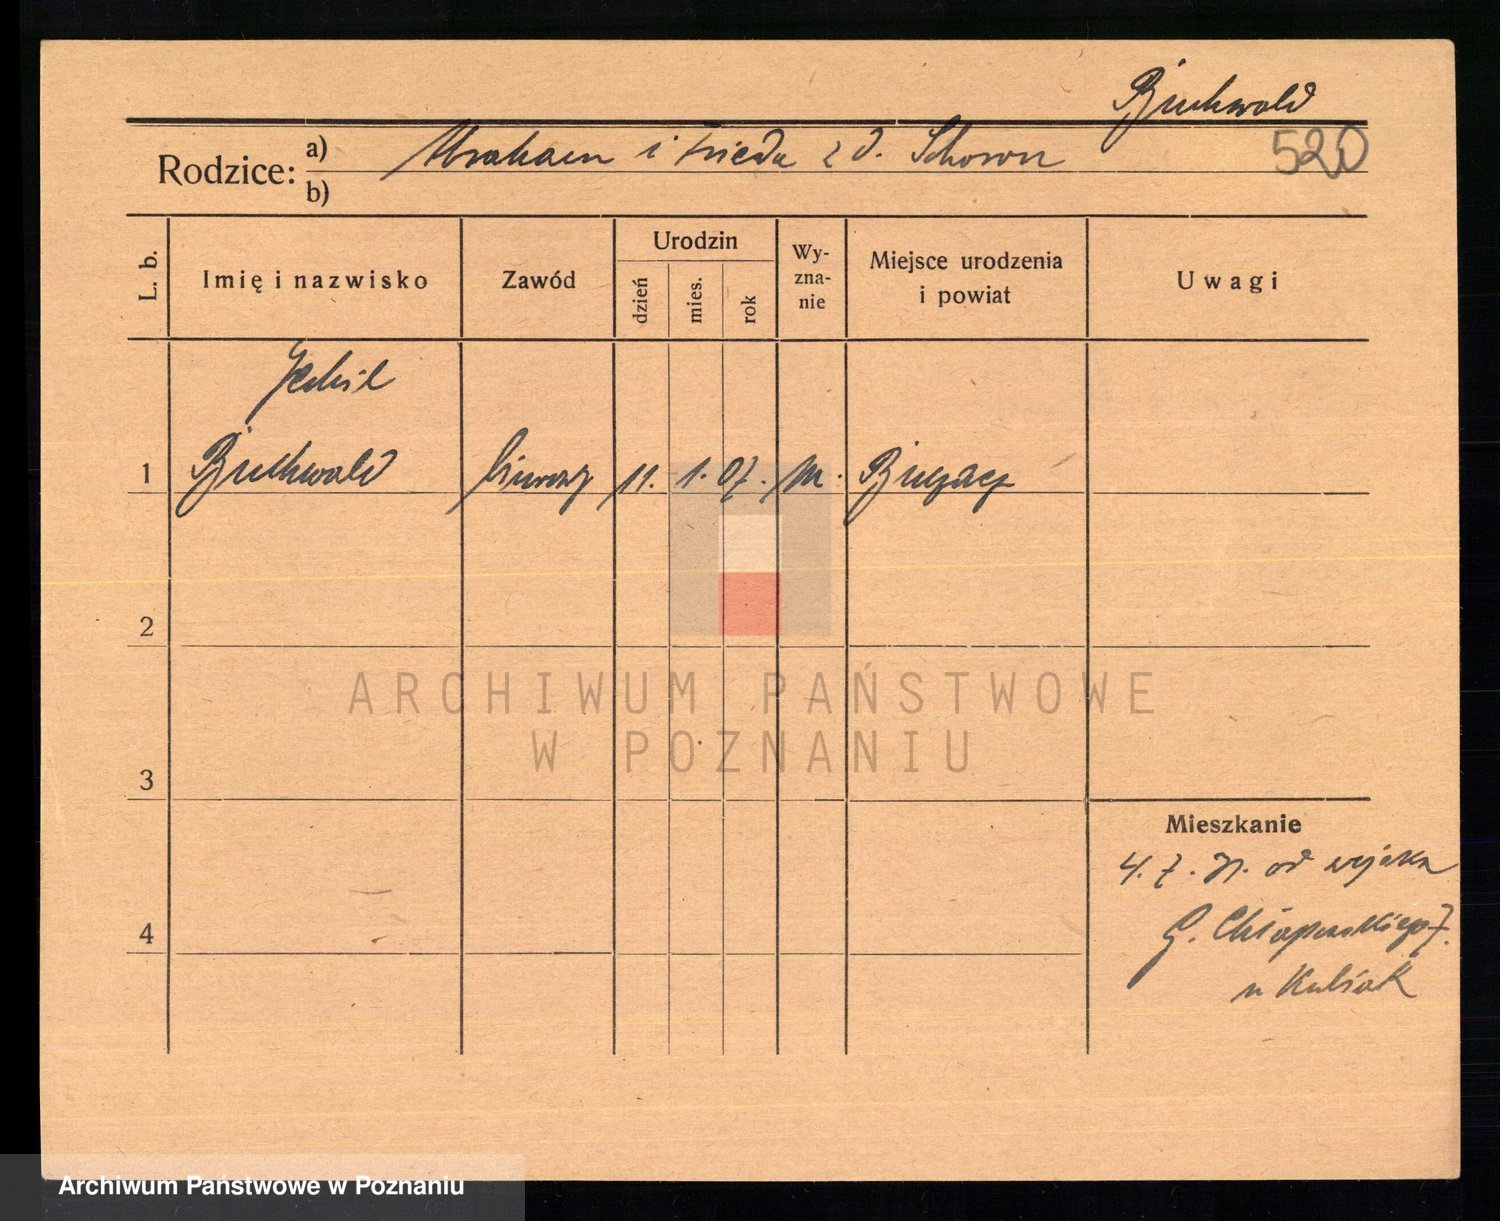 Buchwald
Rodzice: a) Abraham i Frieda z d. Schorr 520
b)
L. b.
Imię i nazwisko
Zawód
Urodzin
dzień
mies.
rok
Wy-
zna-
nie
Miejsce urodzenia
i powiat
Uwagi
Jechil
1 Buchwald biurowy 11. 1. 07. m. Buczacz
2
ARCHIWUM PAŃSTWOWE
W POZNANIU
3
Mieszkanie
4. 7. 31. od wojska
G. Chłapowskiego 7.
4
u Kubiak
Archiwum Państwowe w Poznaniu